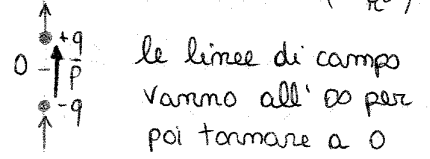 +q
O
p̄
-q
le linee di campo
vanno all' ∞ per
poi tornare a O